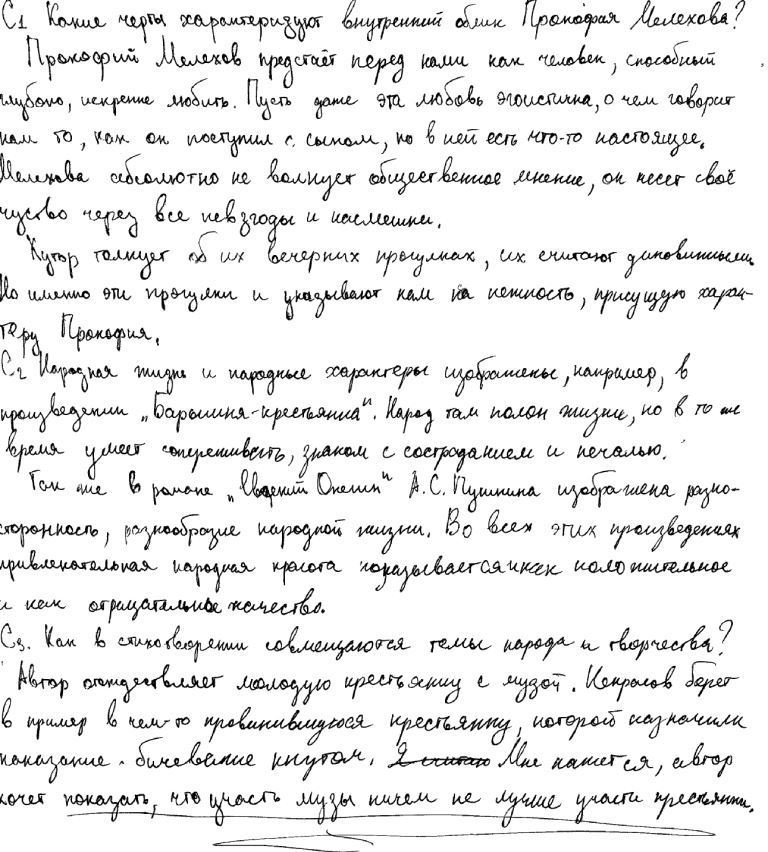 С1 Какие черты характеризуют внутренний облик Прокофия Мелехова?
Прокофий Мелехов предстаёт перед нами как человек, способный
глубоко, искренне любить. Пусть даже эта любовь эгоистична, о чем говорит
нам то, как он поступил с сыном, но в ней есть что-то настоящее.
Мелехова абсолютно не волнует общественное мнение, он несет своё
чуство через все невзгоды и насмешки.
Хутор толкует об их вечерних прогулках, их считают диковинными.
Но именно эти прогулки и указывают нам на нежность, присущую харак-
теру Прокофия.
С2 Народная жизнь и народные характеры изображены, например, в
произведении „Барышня-крестьянка". Народ там полон жизни, но в то же
время умеет сопереживать, знаком с состраданием и печалью.
Так же в романе „Евгений Онегин" А.С. Пушкина изображена разно-
сторонность, разнообразие народной жизни. Во всех этих произведениях
привлекательная народная красота показывается и как положительное
и как отрицательное качество.
С3. Как в стихотворении совмещаются темы народа и творчества?
Автор отождествляет молодую крестьянку с музой. Некрасов берет
в пример в чем-то провинившуюся крестьянку, которой назначили
наказание - бичевание кнутом. Мне кажется, автор
хочет показать, что участь музы ничем не лучше участи крестьянки.